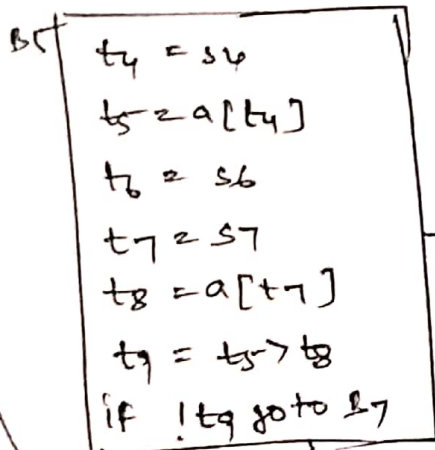 B5
t4 = s4
t5 = a[t4]
t6 = s6
t7 = s7
t8 = a[t7]
t9 = t5 > t8
if !t9 goto B7